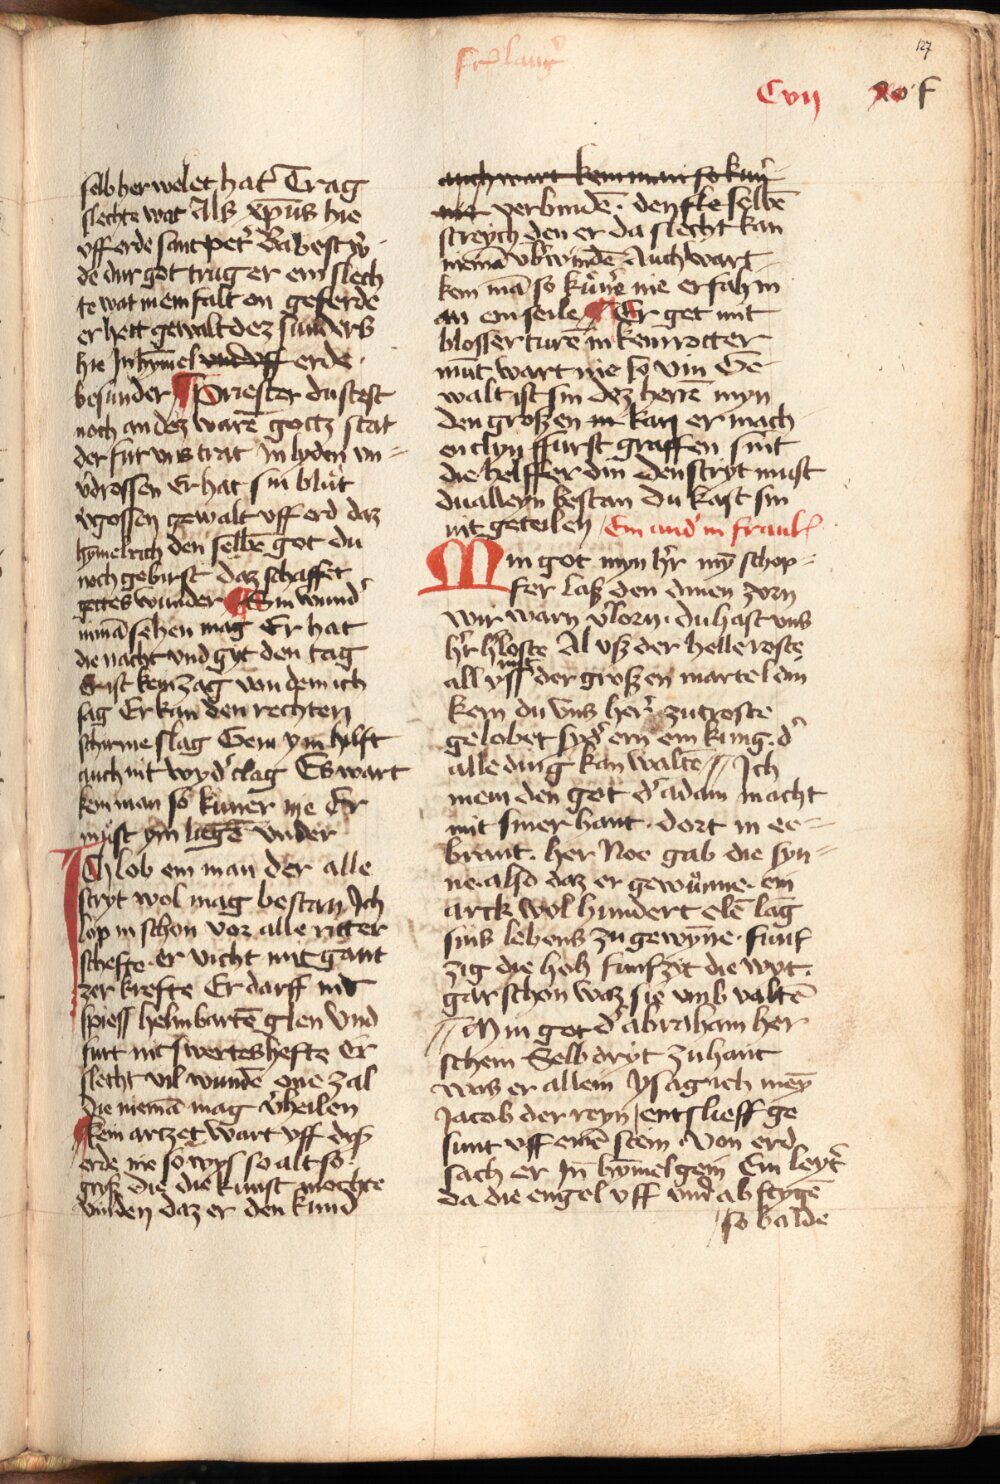 127
fr̄ lang᷑
Cvij
selb her welet hat᷑ Trag
slechte wat Als xp̄us hie
vff erde sant pet᷑
de dur got trug er ein slech
te wat in einfalt on geferde
er hett gewalt dez sunders
hie In hȳmel vnd vff erde ·
besunder Priester du stest
noch an dez warē gottz stat
der fur vns trat In lyden vn=
v᷑drossen Er hat sin blut
v᷑gossen gewalt vff erd daz
hymelrich den selbē got du
noch gebirst daz schaffet
gottes wunder Ein wund᷑
nimā sehen mag Er hat
die nacht vnd gyt den tag
Er ist kein zag von dem ich
sag Er kan den rechten
schirme slag Gein ym hilft
auch nit wyd᷑ clag Es wart
kein man so kuner nie Er
must ym ligē vnder
Ich lob ein man der alle
stryt wol mag bestan Ich
lop in schon vor alle ritter
scheffte · er vicht mit gant
zer krefte Er darff nit
spiess helmbartē glen vnd
furt nit swertes hefte Er
slecht vil wundē one zal
die niemā mag v᷑heilen
kein artzet wart vff diß
erde nie so wys so alt so
groß die die kunst mochte
vinden daz er den kund
auch wart kein man so kun᷑
nie verbindē · den fleselbē
streych den er da slecht kan
niemā vb᷑windē Auch wart
kein mā so kün᷑e nie er fah in
an ein seile Er get mit
blosser turē in keinr otter
mut wart nie so vin Ge
walt ist sin dez herrē myn
den großen in kan er mach
en clyn ffurst graffen sint
die helffer din den stryt must
du alleyn bestan du kast sin
nit geteilen Ein and᷑ in fraul
Min got myn hr᷑ mȳ schop=
fer laß den dinen zorn
wir warn v᷑lorn · du hast vns
hr᷑ h᷑loste Al vß der helle roste
all vff der großen martel din
kern du vns her᷑ zu troste
gelobet syd᷑ ern ein kung · d᷑
alle ding kan waltē Ich
mein den got d᷑ adam macht
mit siner hant · dort in ee=
brant · her Noe gab die syn=
ne · also daz er gewunne · ein
arck wol hundert elē lag
sins lebens zu gewȳne · funf
zig die hoh funfzit die wyt ·
gar schon waz sie vmb valtē
Min got d᷑ abraham her
schein Selb dryt zu hant
was er allein ysaaach mey
Jacob der reyn entslieff ge
sunt vff einē stein Von erd
sach er In hȳmel gein Ein leyt᷑
da die engel vff vnd ab stygē
so balde